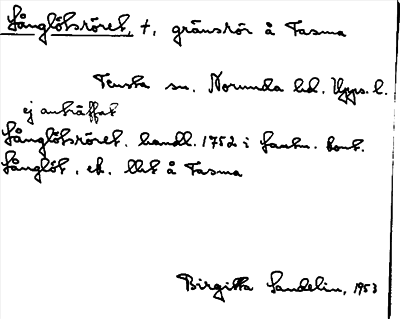 Långlötsröret, †, gränsrör å Tasma
Tensta sn. Norunda hd. Upps. l.
ej anträffat
Långlötsröret. handl. 1752 i Lantm. kont.
Långlöt, ek. llt å Tasma
Birgitta Sandelin, 1953